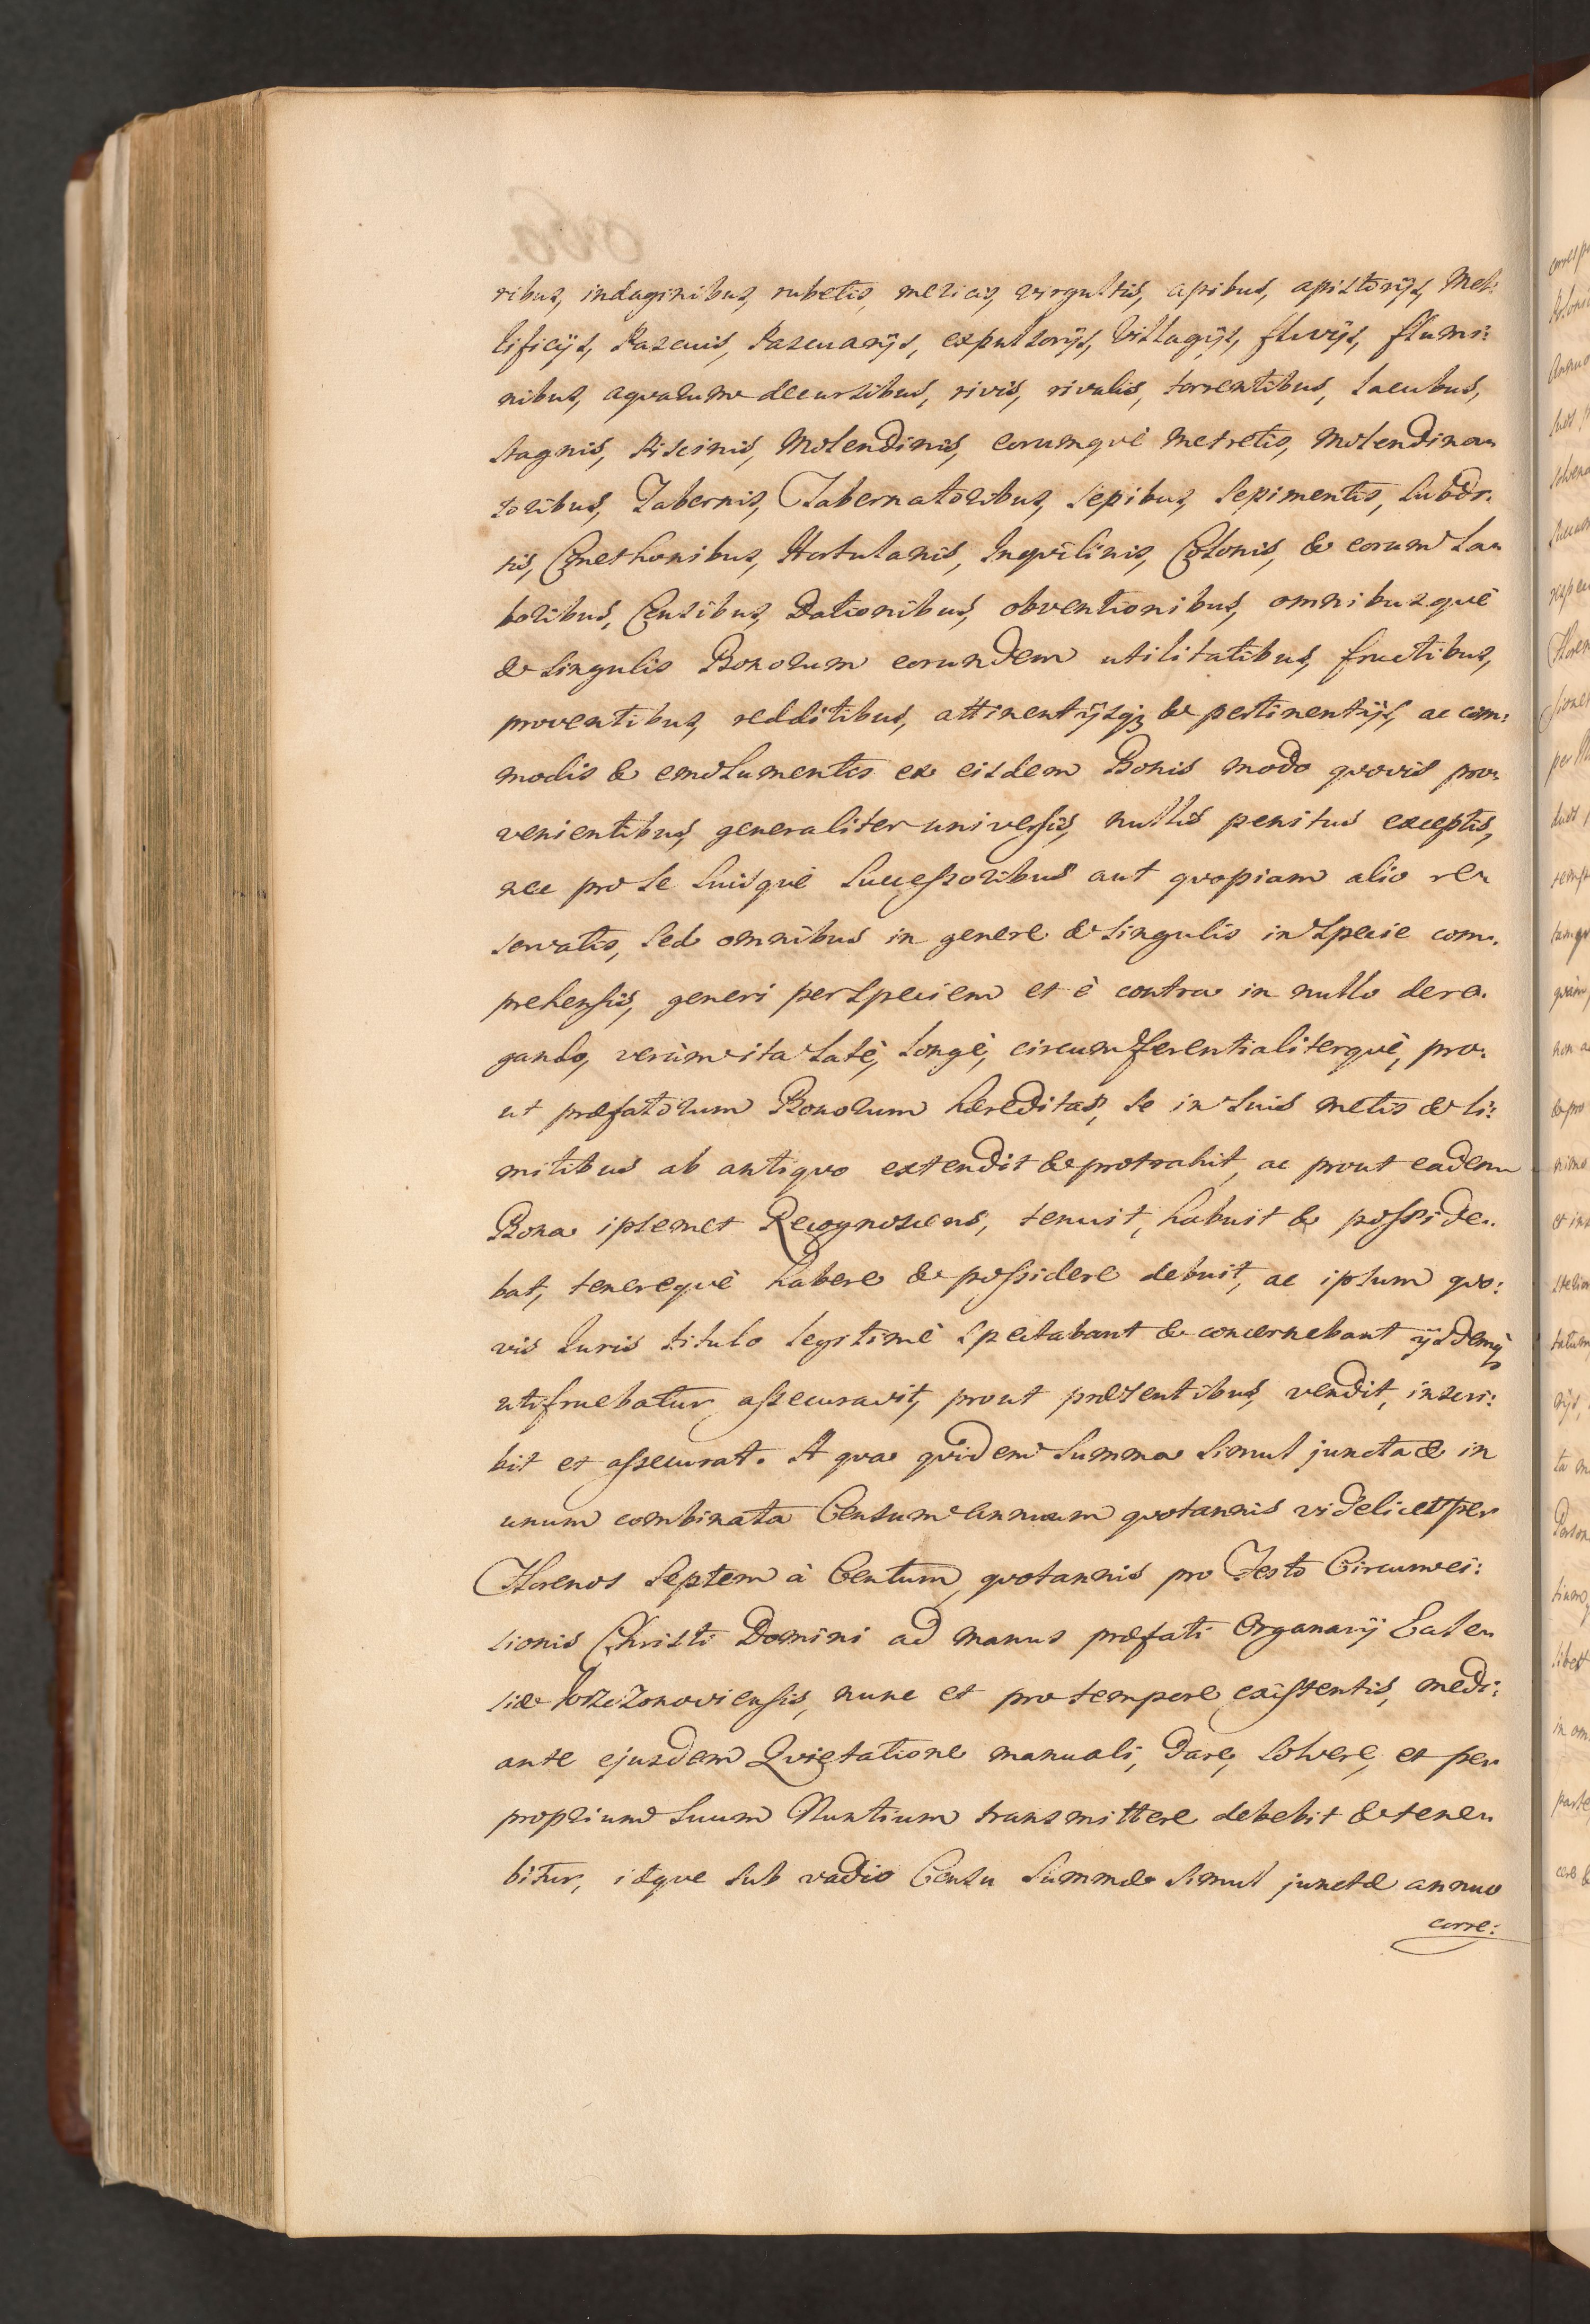 ribus, indaginibus, rubetis, mericis, virgultis, apibus, apistorijs, Mel:
lificijs, Pascuis, Pascuarijs, expulsorijs, Villagijs, fluvijs, flumi:
nibus, aquarum decursibus, rivis, rivulis, torrentibus, Lacubus,
stagnis, Piscinis, Molendinis, eorumquè metretis, Molendina-
toribus, Tabernis, Tabernatoribus, sepibus, sepimentis, subor-
tis, Cmethonibus, Hortulanis, Inquilinis, Colonis, & eorum La-
boribus, Censibus, Dationibus, obventionibus, omnibusquè
& singulis Bonorum eorundem utilitatibus, fructibus,
proventibus, redditibus, attinentijsq; & pertinentijs, ac com:
modis & emolumentis ex eisdem Bonis modo quovis pro-
venientibus, generaliter universis, nullis penitus exceptis,
nec pro se suisquè Successoribus aut quopiam alio re-
servatis, sed omnibus in genere & singulis in specie com-
prehensis, generi per speciem et è contra in nullo dero-
gando, verùm ita latè, longè, circumferentialiterquè, pro-
ut præfatorum Bonorum hæreditas, se in suis metis & li:
mitibus ab antiquo extendit & protrahit, ac prout eadem
Bona ipsemet Recognoscens, tenuit, habuit & posside-
bat, tenerequè habere & possidere debuit, ac ipsum quo:
vis Juris titulo legitimè spectabant & concernebant ijsdemq;
utifruebatur assecuravit, prout præsentibus, vendit, inscri:
bit et assecurat. A qua quidem Summa simul juncta & in
unum combinata Censum annuum quotannis videlicet per
Florenos Septem à Centum, quotannis pro Festo Circumci:
sionis Christi Domini ad manus præfati Organarij Eccle-
siæ nunc et pro tempore existentis, medi:
ante ejusdem Quietatione manuali, dare, solvere, et per
proprium suum Nuntium transmittere debebit & tene-
bitur, idque sub vadio Censu Summæ simul junctæ annuo
corre: